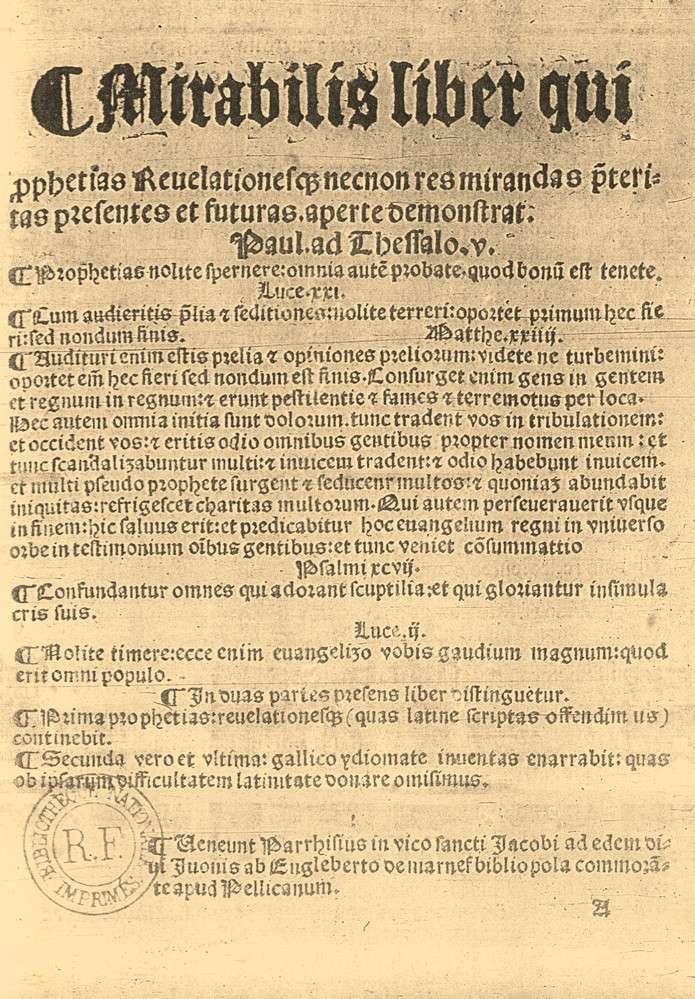 ¶ Mirabilis liber qui
ꝓphetias Reuelationesqꝫ necnon res mirandas p̄teri-
tas presentes et futuras. aperte demonstrat:
Paul. ad Thessalo. v.
¶ Prophetias nolite spernere: omnia autē probate. quod bonū est tenete.
Luce. xxi.
¶ Cum audieritis p̄lia ⁊ seditiones: nolite terreri: oportet primum hec fie
ri: sed nondum finis. Matthe. xxiiij.
¶ Audituri enim estis prelia ⁊ opiniones preliorum: videte ne turbemini:
oportet em̄ hec fieri sed nondum est finis. Consurget enim gens in gentem
et regnum in regnum: ⁊ erunt pestilentie ⁊ fames ⁊ terremotus per loca.
Hec autem omnia initia sunt dolorum. tunc tradent vos in tribulationem:
et occident vos: ⁊ eritis odio omnibus gentibus propter nomen meum: et
tunc scandalizabuntur multi: ⁊ inuicem tradent: ⁊ odio habebunt inuicem.
et multi pseudo prophete surgent ⁊ seducent multos: ⁊ quoniaꝫ abundabit
iniquitas: refrigescet charitas multorum. Qui autem perseuerauerit vsque
in finem: hic saluus erit: et predicabitur hoc euangelium regni in vniuerso
orbe in testimonium oībus gentibus: et tunc veniet cōsummattio
Psalmi xcvij.
¶ Confundantur omnes qui adorant scuptilia: et qui gloriantur in simula
cris suis.
Luce. ij.
¶ Nolite timere: ecce enim euangelizo vobis gaudium magnum: quod
erit omni populo.
¶ In duas partes presens liber distinguetur.
¶ Prima prophetias: reuelationesqꝫ (quas latine scriptas offendimus)
continebit.
¶ Secunda vero et vltima: gallico ydiomate inuentas enarrabit: quas
ob ipsarum difficultatem latinitate donare omisimus.
¶ Ueneunt Parrhisius in vico sancti Jacobi ad edem di-
ui Juonis ab Engleberto de marnef bibliopola commorā-
te apud Pellicanum.
A
BIBLIOTHEQUE NATIONALE
R.F.
IMPRIMÉS